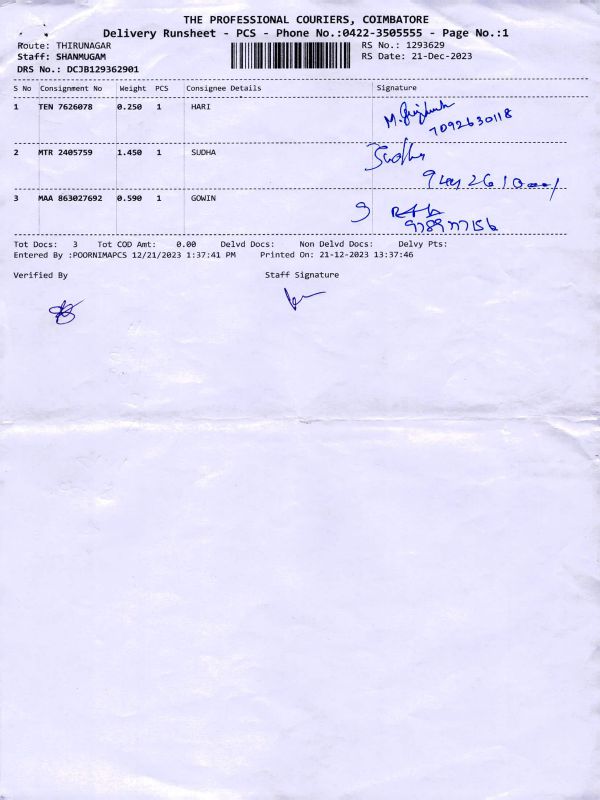 THE PROFESSIONAL COURIERS, COIMBATORE
Delivery Runsheet - PCS - Phone No.:0422-3505555 - Page No.:1
Route: THIRUNAGAR RS No.: 1293629
Staff: SHANMUGAM RS Date: 21-Dec-2023
DRS No.: DCJB129362901
S No Consignment No Weight PCS Consignee Details Signature
1 TEN 7626078 0.250 1 HARI
7092630118
2 MTR 2405759 1.450 1 SUDHA Sudha
3 MAA 863027692 0.590 1 GOWIN
Tot Docs: 3 Tot COD Amt: 0.00 Delvd Docs: Non Delvd Docs: Delvy Pts:
Entered By :POORNIMAPCS 12/21/2023 1:37:41 PM Printed On: 21-12-2023 13:37:46
Verified By Staff Signature